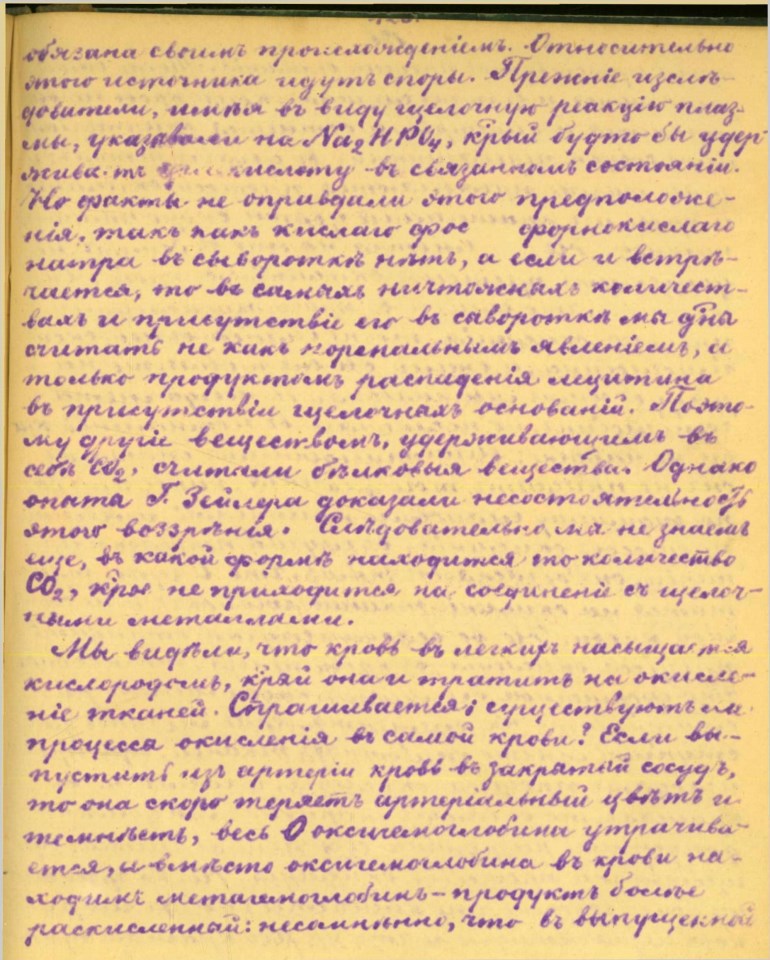 обязана своимъ происхожденіемъ. Относительно
этого источника идутъ споры. Прежніе изслѣ-
дователи, имѣя въ виду щелочную реакцію плаз-
мы, указывали на Na₂HPO₄, к̃рый будто бы удер
живаетъ кислоту въ связанномъ состояніи.
Но факты не оправдали этого предположе-
нія, такъ какъ кислаго фос форнокислаго
натра въ сывороткѣ нѣтъ, а если и встрѣ-
чается, то въ самыхъ ничтожныхъ количест-
вахъ и присутствіе его въ сывороткѣ мы д̃ны
считать не какъ нормальнымъ явленіемъ, а
только продуктомъ распаденія лецитина
въ присутствіи щелочныхъ основаній. Поэто-
му другіе веществомъ, удерживающимъ въ
себѣ CO₂, считали бѣлковыя вещества. Однако
опыты Г. Зейлера доказали несостоятельность
этого воззрѣнія. Слѣдовательно, мы не знаемъ
еще, въ какой формѣ находится то количество
CO₂, к̃рое не приходится на соединеній съ щелоч-
ными металлами.
Мы видѣли, что кровь въ легкихъ насыщается
кислородомъ, к̃рый она и тратитъ на окисле-
ніе тканей. Спрашивается; существуютъ ли
процессы окисленія въ самой крови? Если вы-
пустить изъ артеріи кровь въ закрытый сосудъ,
то она скоро теряетъ артеріальный цвѣтъ и
темнѣетъ, весь O оксигемоглобина утрачива-
ется, и вмѣсто оксигемоглобина въ крови на-
ходимъ метагемоглобинъ - продуктъ болѣе
раскисленный: несомнѣнно, что въ выпущенной